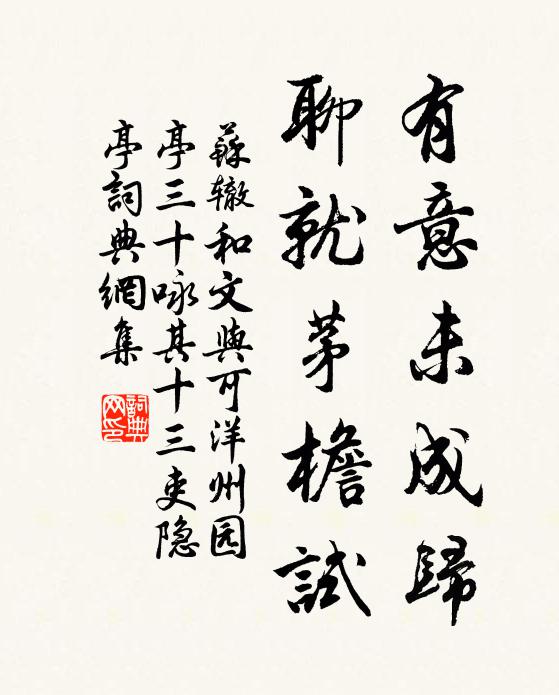 有意未成歸
聊就茅檐試
蘇辙和文與可洋州园
亭三十咏其十三吏隐
亭詞典網集
詞典
网印